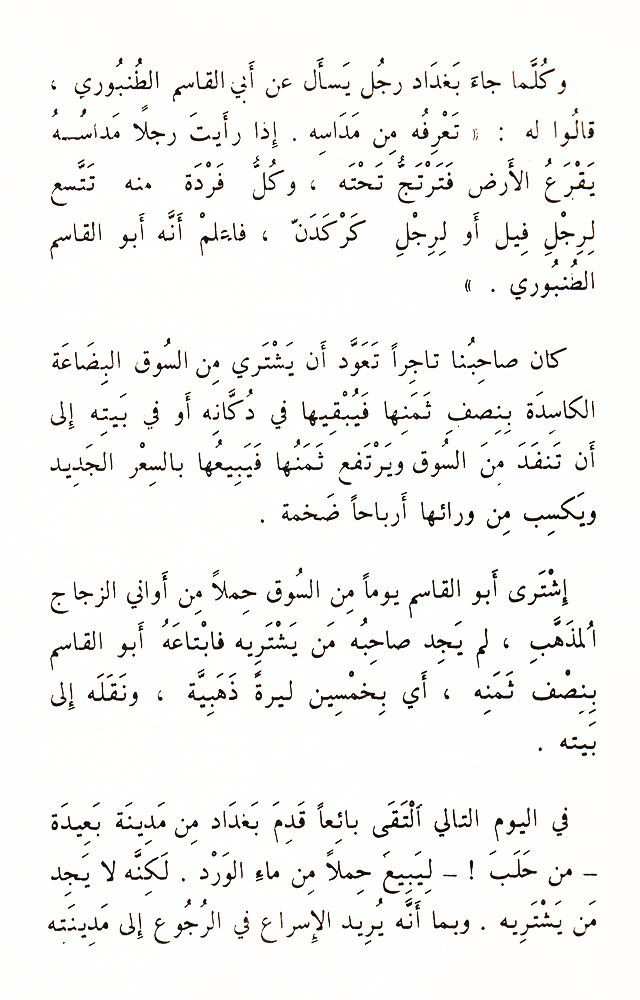 وكُلَّما جاءَ بَغدَاد رجُل يَسأَل عن أَبي القاسم الطُنبُوري ،
قالُوا له : « تَعْرِفُه مِن مَدَاسِه . إِذا رأَيتَ رجلًا مَداسُــهُ
يَقْرَعُ الأَرض فَتَرْتَجُّ تَحْتَه ، وكُلُّ فَرْدَة منه تَتَّسع
لِرِجْلِ فِيل أَو لِرِجْلِ كَرْكَدَنّ ، فاعْلَمْ أَنَّه أَبو القاسم
الطُنبُوري . »
كان صاحِبُنا تاجِراً تَعَوَّد أَن يَشْتَري مِن السُوق البِضَاعَة
الكاسِدَة بِنِصفِ ثَمَنِها فَيُبْقِيها في دُكَّانِه أَو في بَيتِه إِلى
أَن تَنفَدَ مِنَ السُوق ويَرْتَفع ثَمَنُها فَيَبِيعُها بالسِعْر الجَدِيد
ويَكسِب مِن ورائها أَرباحاً ضَخمة .
إِشْتَرى أَبو القاسم يوماً مِن السُوق حِملاً مِن أَواني الزجاج
اُلمذَهَّبِ ، لم يَجِد صاحِبُه مَن يَشْتَرِيه فابْتاعَهُ أَبو القاسم
بِنِصْف ثَمَنِه ، أَي بِخمْسِين ليرةً ذَهَبِيَّة ، ونَقَلَه إِلى
بَيته .
في اليوم التالي ٱلْتَقَى بائِعاً قَدِمَ بَغدَاد مِن مَدِينَة بَعِيدَة
– من حَلَبَ ! – لِيَبِيعَ حِملاً مِن ماءِ الوَرْد . لَكِنَّه لا يَجِد
مَن يَشْتَرِيه . وبما أَنَّه يُرِيد الإِسراع في الرُجُوع إِلى مَدِينَتِه